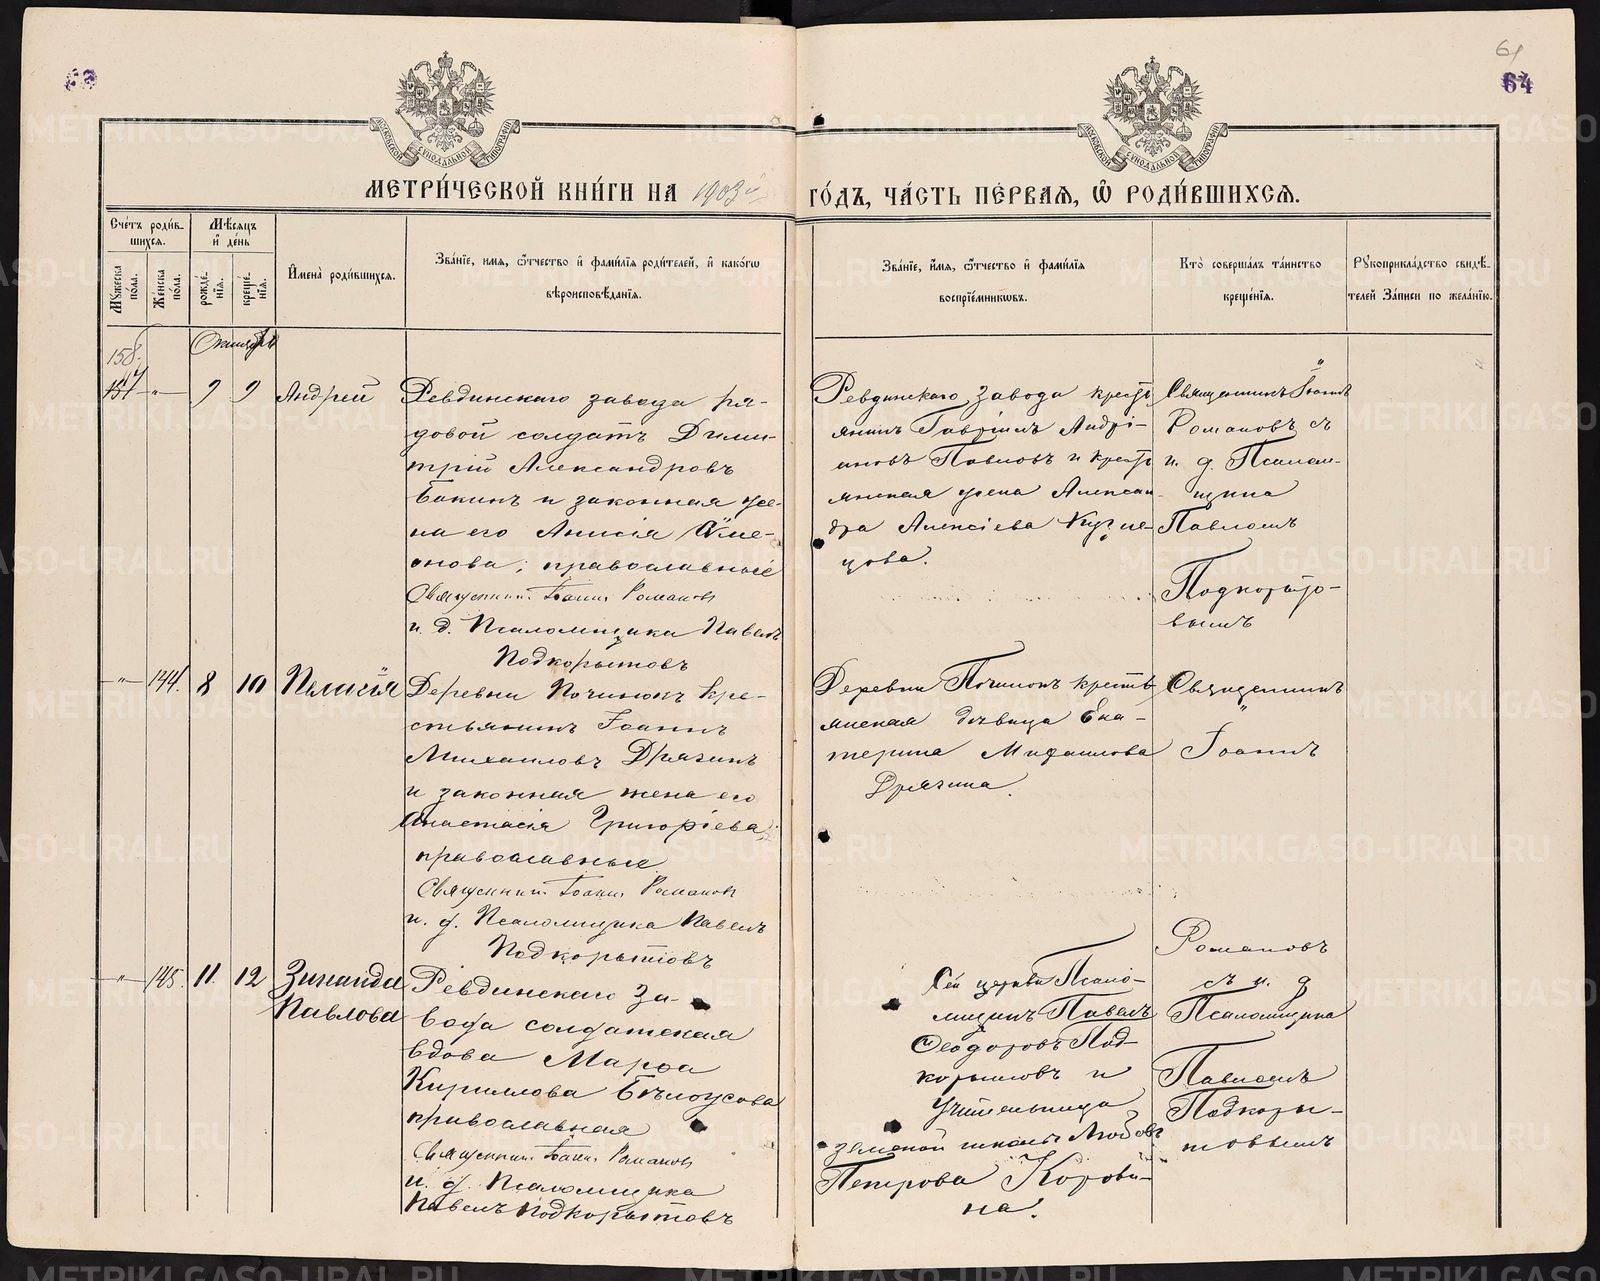 61
64
МОСКОВСКОЙ СѴНОДАЛЬНОЙ ТИПОГРАФІИ
МОСКОВСКОЙ СѴНОДАЛЬНОЙ ТИПОГРАФІИ
МЕТРИ́ЧЕСКОЙ КНИ́ГИ НА 1903й ГО́ДЪ, ЧА́СТЬ ПЕ́РВАЯ, Ѽ РОДИ́ВШИХСЯ.
Сче́тъ роди́в-
шихся.
Мѣ́сяцъ
и҆ де́нь
Му́жеска по́ла.
Же́нска по́ла.
рожде́-
нїя.
креще́-
нїя.
И҆мена̀ роди́вшихся.
Зва́нїе, и҆́мя, ѻ҆́тчество и҆ фами́лїя роди́телей, и҆ како́гѡ
вѣроисповѣ́данїя.
Зва́нїе, и҆́мя, ѻ҆́тчество и҆ фами́лїя
воспрїе́мникѡвъ.
Кто̀ соверша́лъ та́инство
креще́нїя.
Рꙋкоприкла́дство свидѣ́-
телей за́писи по жела́нїю.
Октябрь
158.
157 -"- 9 9 Андрей
Ревдинскаго завода ря-
довой солдатъ Дими-
трій Александровъ
Бакинъ и законная же-
на его Анисія Симе-
онова; православные
Священникъ Іоаннъ Романовъ
и. д. Псаломщика Павелъ
Подкорытовъ
Ревдинскаго завода кресть
янинъ Гавріилъ Андрі-
ановъ Павловъ и кресть
янская жена Алексан-
дра Алексіева Кузне-
цова.
Священникъ Іоаннъ
Романовъ съ
и. д. Псалом-
щика
Павломъ
Подкоры́то-
вымъ
-"- 144. 8 10 Пелагія
Деревни Починокъ кре-
стьянинъ Іоаннъ
Михаиловъ Дрягинъ
и законная жена его
Анастасія Григоріева;
православные.
Священникъ Іоаннъ Романовъ
и. д. Псаломщика Павелъ
Подкорытовъ
Деревни Починокъ кресть
янская дѣвица Ека-
терина Михаилова
Дрягина.
Священникъ
Іоаннъ
Романовъ
съ и. д
Псаломщика
Павломъ
Подкоры-
товымъ
-"- 145. 11. 12 Зинаида
Павлова
Ревдинскаго За-
вода солдатская
вдова Марѳа
Кириллова Бѣлоусова
православная
Священникъ Іоаннъ Романовъ
и. д. Псаломщика
Павелъ Подкорытовъ
Сей церкви Псало-
мщикъ Павелъ
Ѳеодоровъ Под-
корытовъ и
Учительница
земской школы Любовь
Петрова Корови-
на.
METRIKI.GASO-URAL.RU